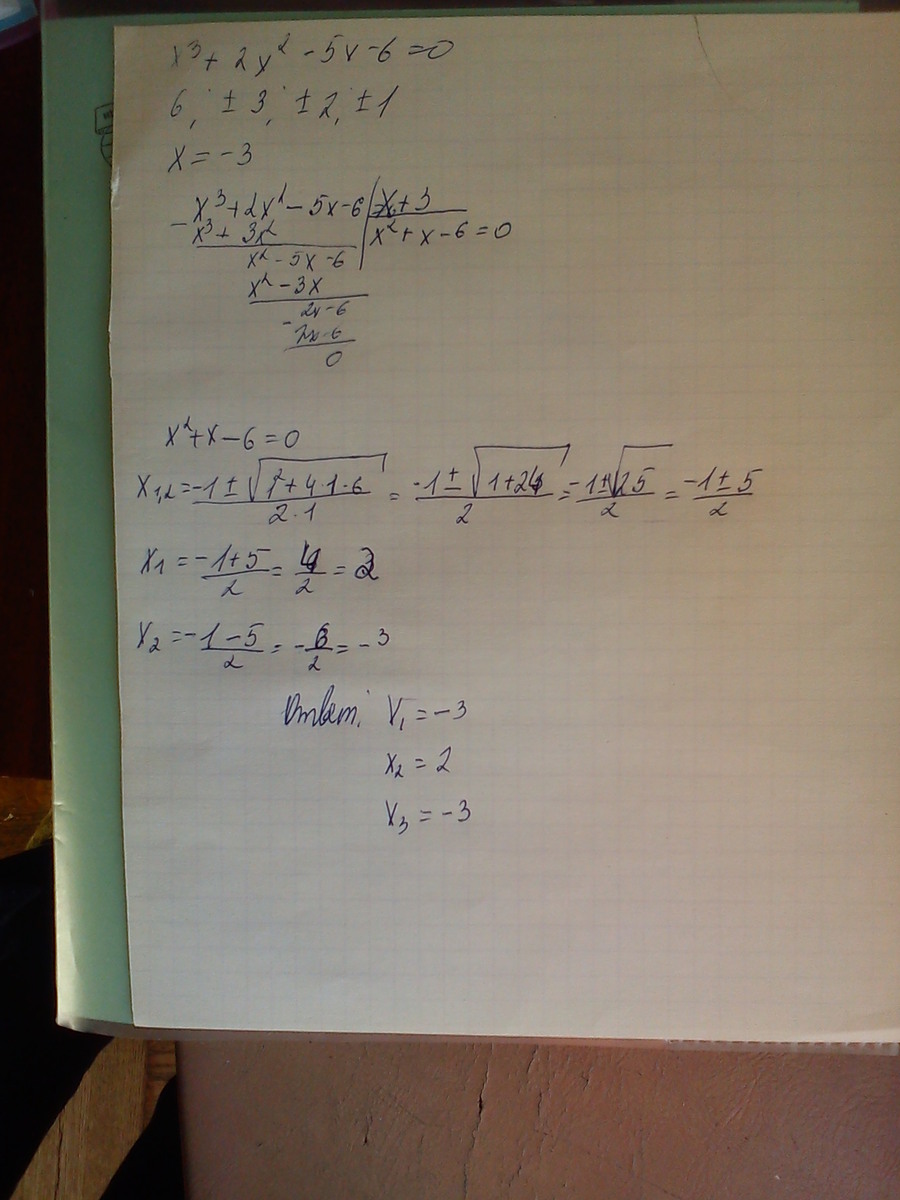 x³ + 2x² - 5x - 6 = 0
6; ± 3; ± 2; ± 1
x = -3
x³ + 2x² - 5x - 6 | x + 3
- x³ + 3x² | x² + x - 6 = 0
x² - 5x - 6
x² - 3x
- 2x - 6
2x - 6
0
x² + x - 6 = 0
x₁,₂ = -1 ± √(1² + 4·1·6) / 2·1 = -1 ± √(1 + 24) / 2 = -1 ± √25 / 2 = -1 ± 5 / 2
x₁ = -1 + 5 / 2 = 4 / 2 = 2
x₂ = -1 - 5 / 2 = - 6 / 2 = -3
Ответ: x₁ = -3
x₂ = 2
x₃ = -3